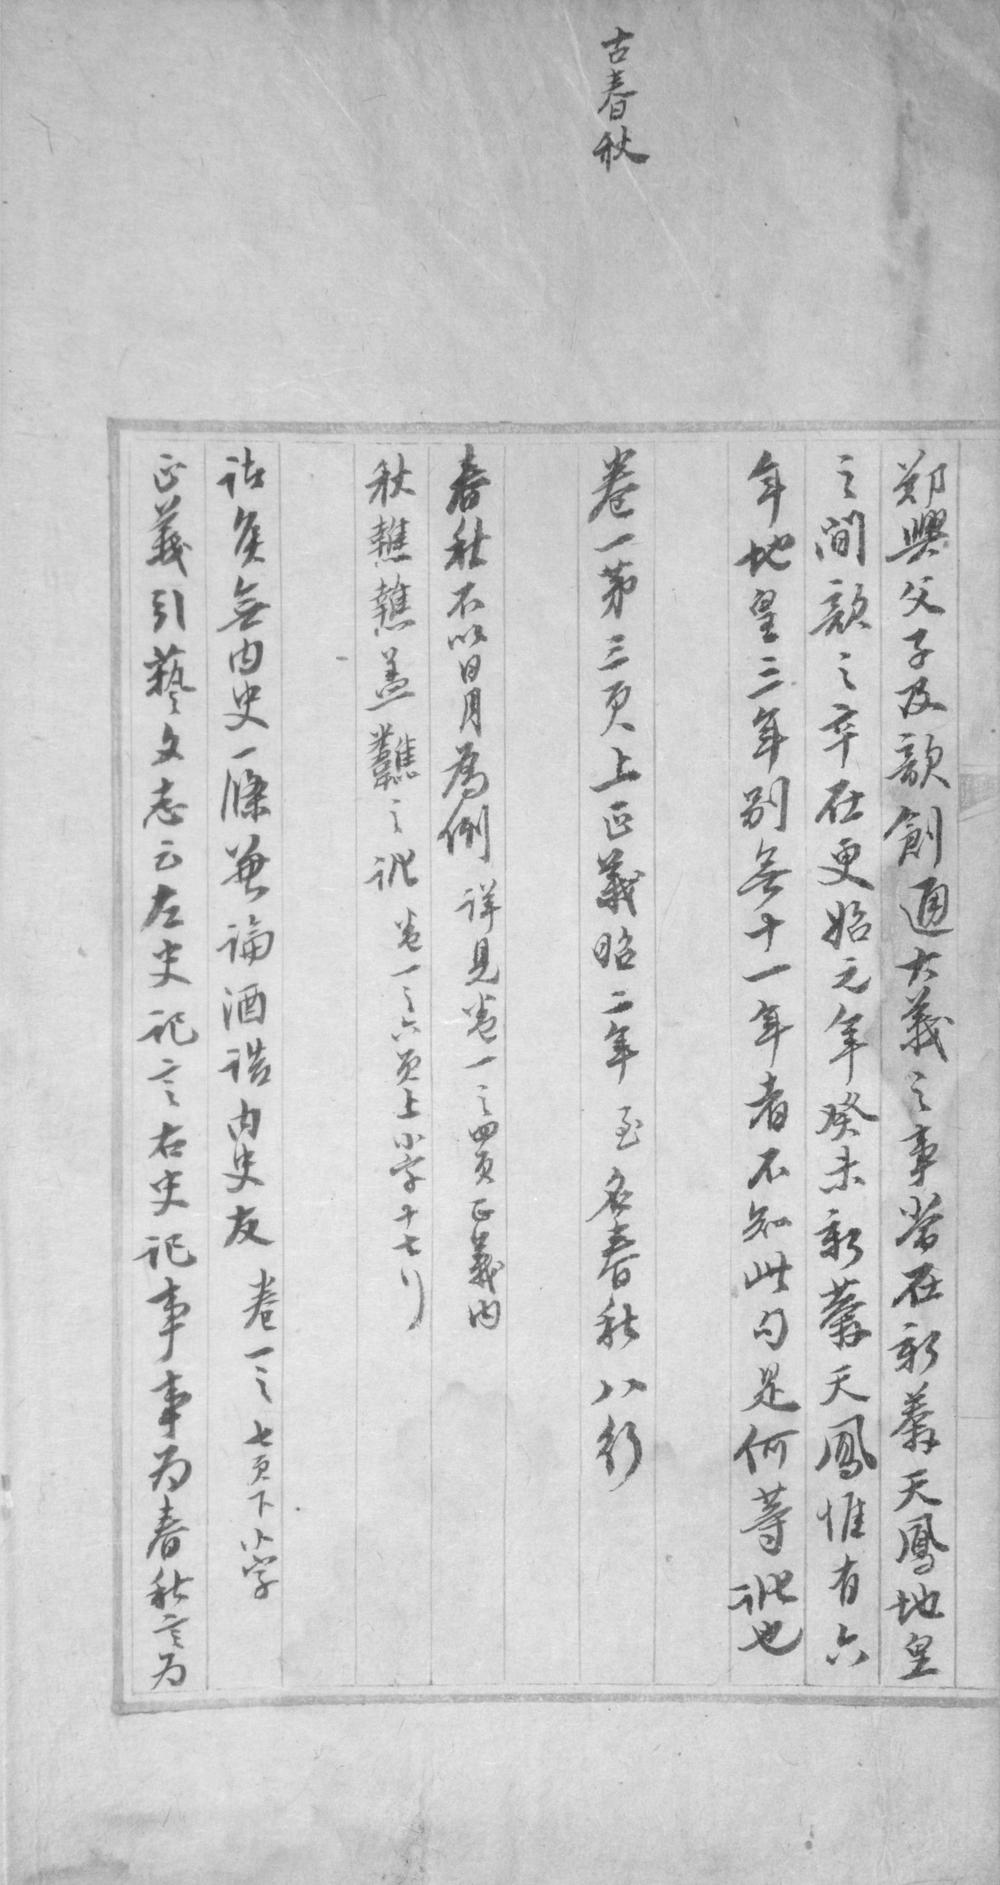 古春秋
鄭興父子及歆創通大義之事當在新莽天鳳地皇
之間歆之卒在更始元年癸未新莽天鳳惟有六
年地皇三年別無十一年者不知此句是何等訛也
卷一第三頁上正義昭二年至名春秋八行
春秋不以日月為例詳見卷一之四頁正義內
秋蓋之訛卷一之六頁上小字十七行
諸侯無內史一條兼論酒誥內史友卷一之七頁下小字
正義引藝文志云左史記言右史記事事為春秋言為